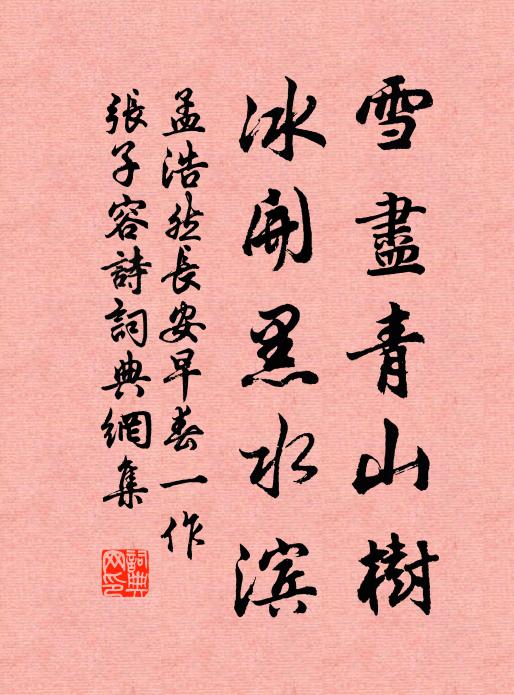 雪盡青山樹
冰開黑水滨
孟浩然長安早春一作
張子容詩詞典網集
詞典網印